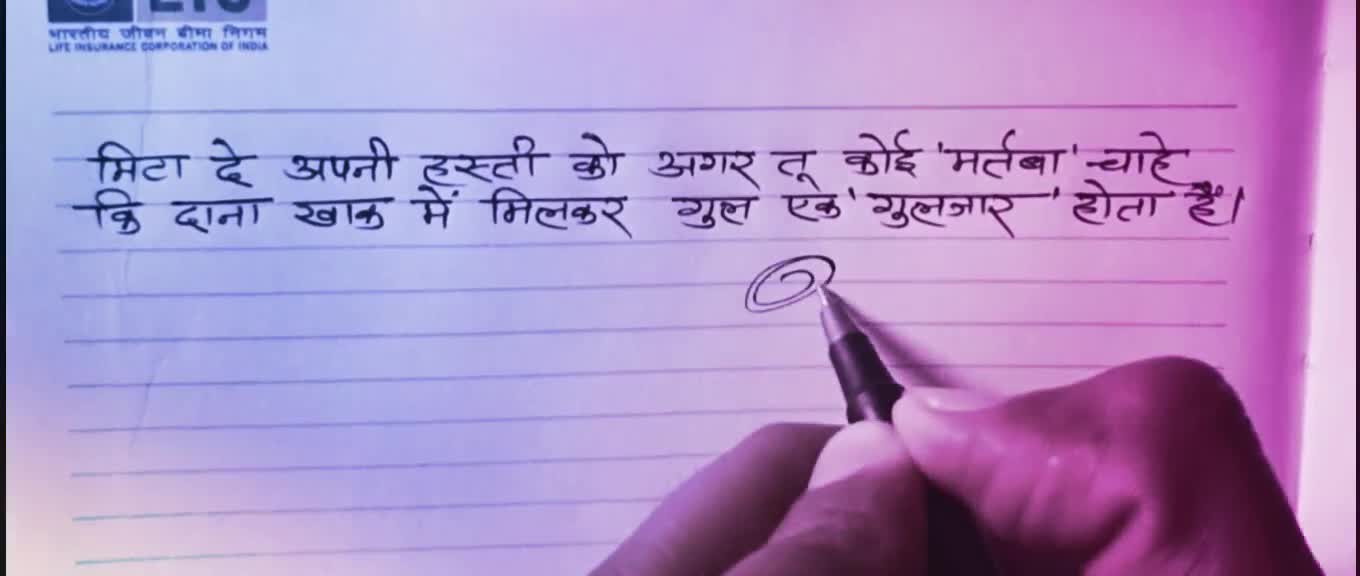 LIC
भारतीय जीवन बीमा निगम
LIFE INSURANCE CORPORATION OF INDIA
मिटा दे अपनी हस्ती को अगर तू कोई 'मर्तबा' चाहे
कि दाना खाक में मिलकर गुल एक 'गुलजार' होता हैं।